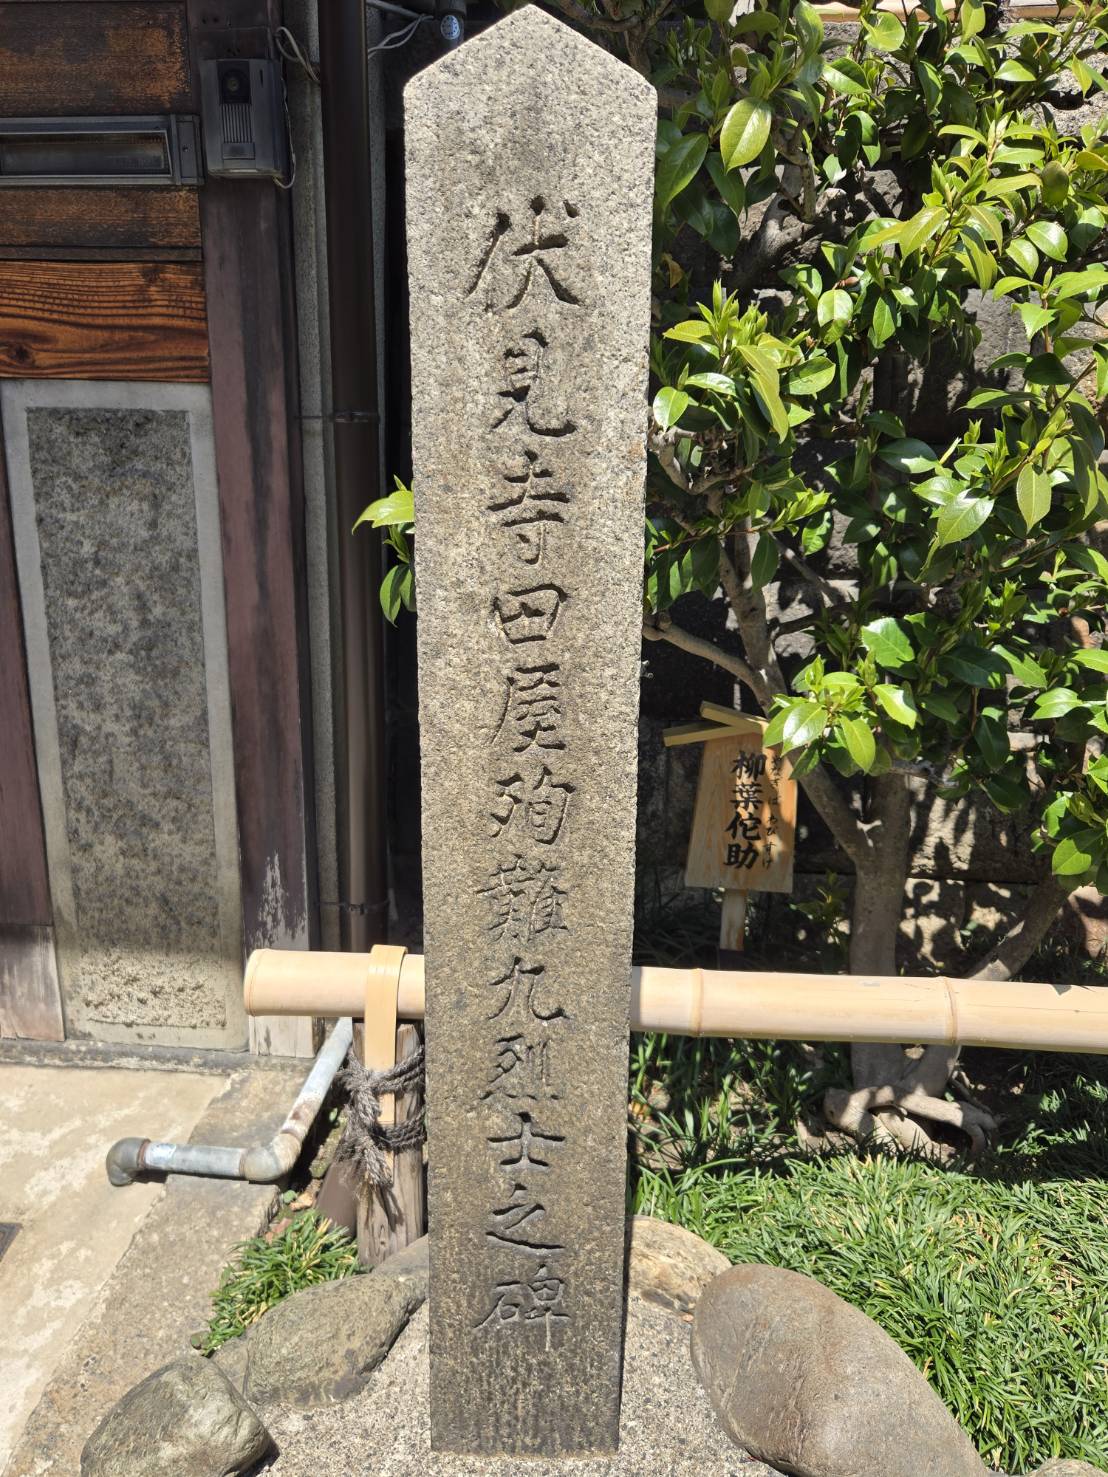 伏見寺田屋殉難九烈士之碑
柳葉侘助
やなぎばわびすけ